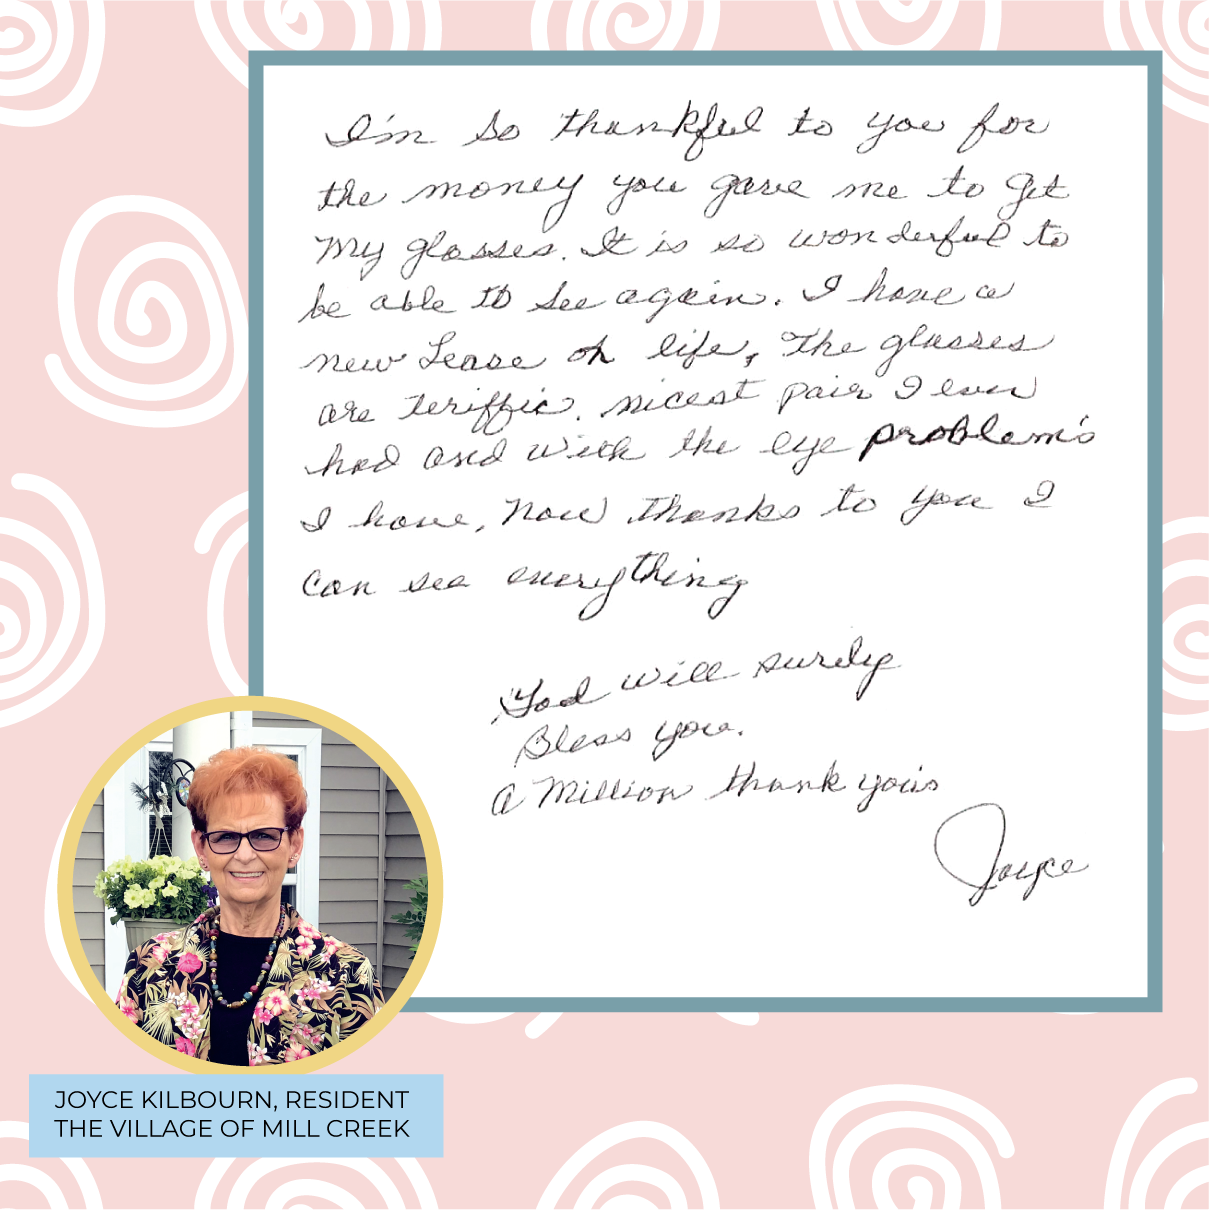 I'm so thankful to you for
the money you gave me to get
my glasses. It is so wonderful to
be able to see again. I have a
new Lease on life, The glasses
are teriffic. nicest pair I ever
had and with the eye problem's
I have, Now thanks to you I
can see everything
God will surely
Bless you.
a Million thank you's
Joyce
JOYCE KILBOURN, RESIDENT
THE VILLAGE OF MILL CREEK